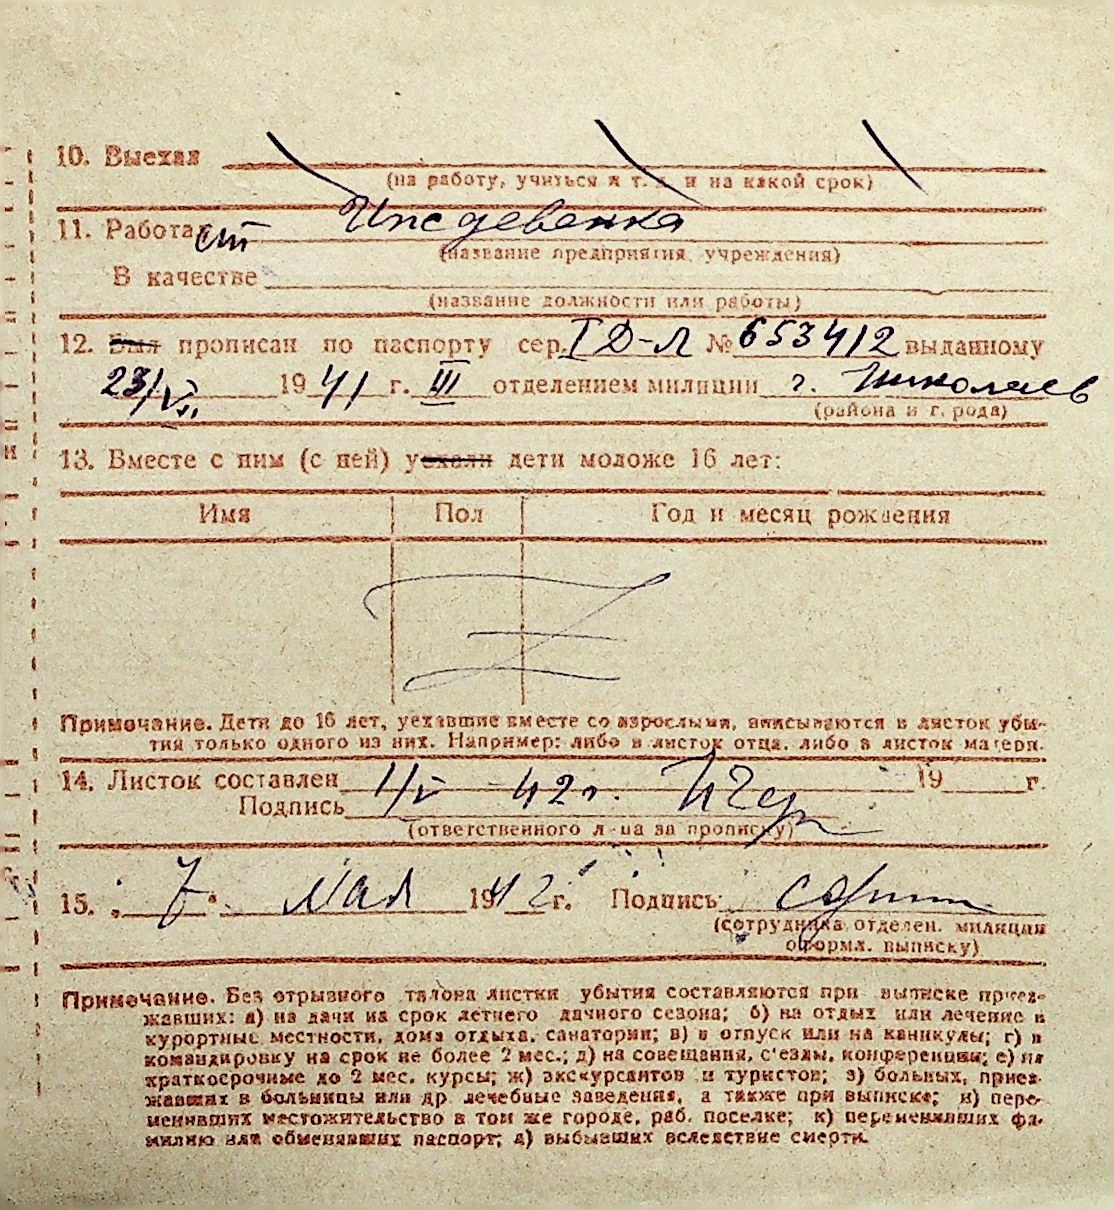 10. Выехал
(на работу, учиться и т. д. и на какой срок)
11. Работал ст Иждевенка
(название предприятия, учреждения)
В качестве
(название должности или работы)
12. Был прописан по паспорту сер. I Д-Л № 653412 выданному
23/VI 1941 г. III отделением милиции г. Николаев
(района и города)
13. Вместе с ним (с ней) уехали дети моложе 16 лет:
Имя Пол Год и месяц рождения
Z
Примечание. Дети до 16 лет, уехавшие вместе со взрослыми, вписываются в листок убы-
тия только одного из них. Например: либо в листок отца, либо в листок матери.
14. Листок составлен 1/V 42 г. 19 г.
Подпись
(ответственного л-ца за прописку)
15. „7“ Мая 1942 г. Подпись
(сотрудника отделен. милиции
оформл. выписку)
Примечание. Без отрывного талона листки убытия составляются при выписке приез-
жавших: а) на дачи на срок летнего дачного сезона; б) на отдых или лечение в
курортные местности, дома отдыха, санатории; в) в отпуск или на каникулы; г) в
командировку на срок не более 2 мес.; д) на совещания, с'езды, конференции; е) на
краткосрочные до 2 мес. курсы; ж) экскурсантов и туристов; з) больных, приез-
жавших в больницы или др. лечебные заведения, а также при выписке; и) пере-
менивших местожительство в том же городе, раб. поселке; к) переменивших фа-
милию или обменявших паспорт; л) выбывших вследствие смерти.